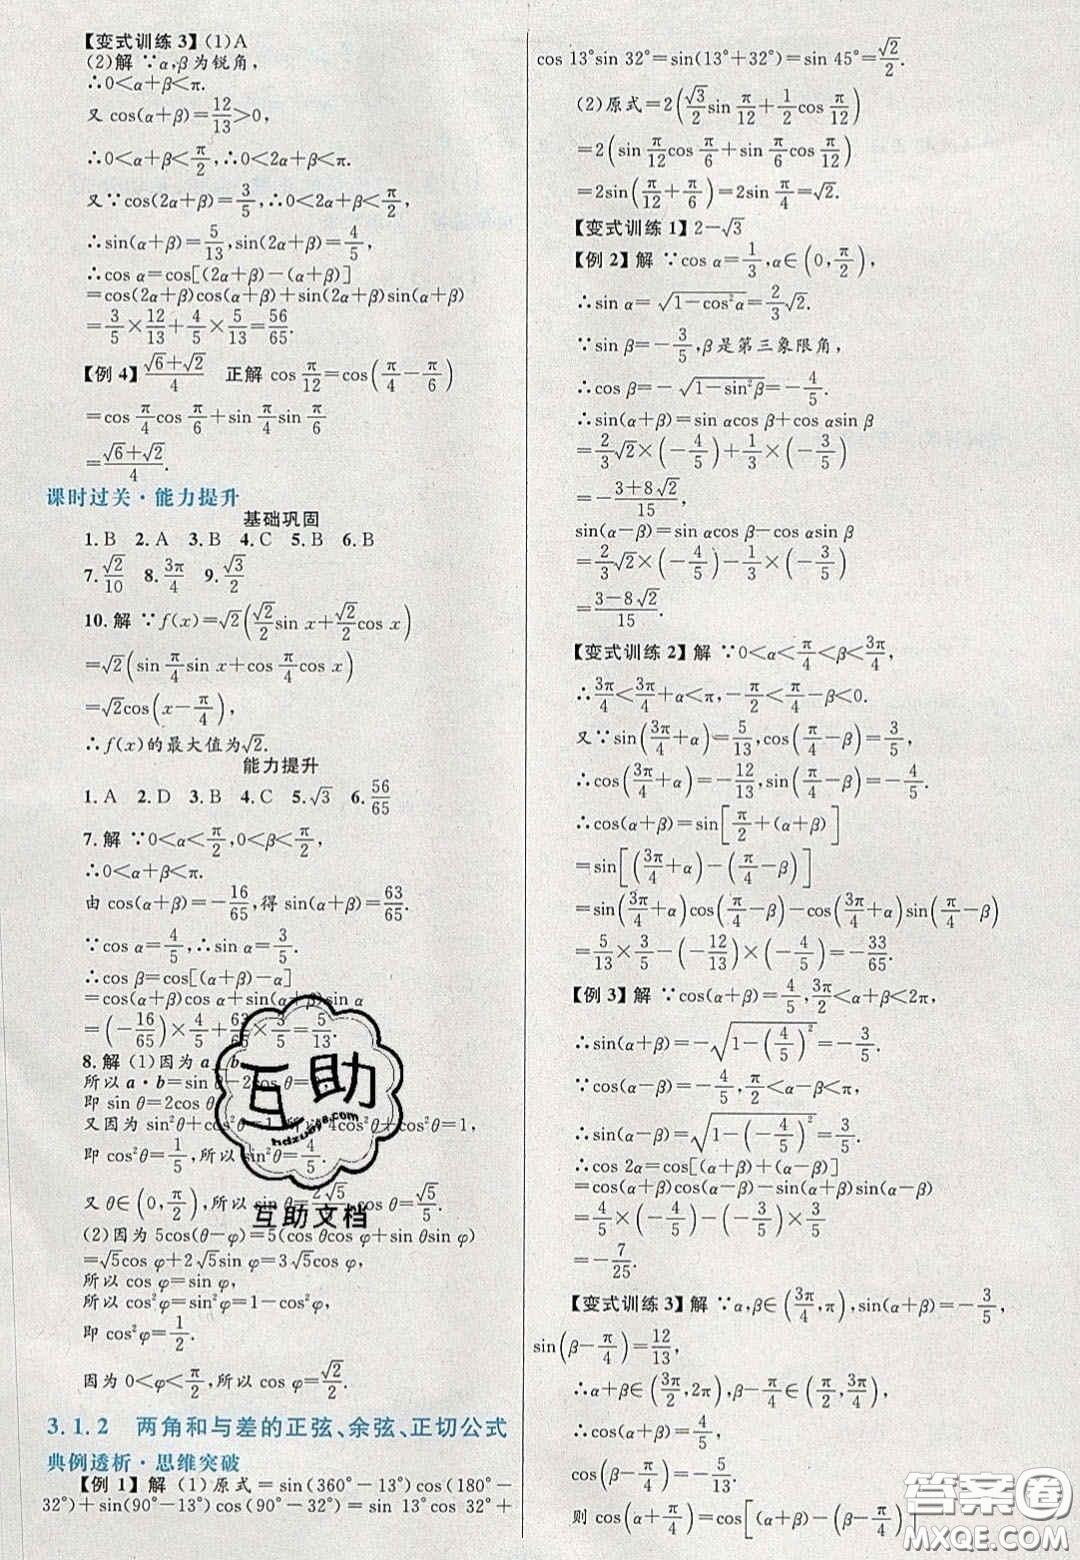 【变式训练3】(1)A
(2)解 ∵α,β为锐角,
∴0<α+β<π.
又 cos(α+β)=12/13>0,
∴0<α+β<π/2,∴0<2α+β<π.
又∵cos(2α+β)=3/5,∴0<2α+β<π/2,
∴sin(α+β)=5/13,sin(2α+β)=4/5,
∴cos α=cos[(2α+β)-(α+β)]
=cos(2α+β)cos(α+β)+sin(2α+β)sin(α+β)
=3/5×12/13+4/5×5/13=56/65.
【例4】(√6+√2)/4 正解 cos π/12=cos(π/4-π/6)
=cos π/4 cos π/6+sin π/4 sin π/6
=(√6+√2)/4.
课时过关·能力提升
基础巩固
1.B 2.A 3.B 4.C 5.B 6.B
7.√2/10 8.3π/4 9.√3/2
10.解 ∵f(x)=√2(√2/2 sin x+√2/2 cos x)
=√2(sin π/4 sin x+cos π/4 cos x)
=√2cos(x-π/4),
∴f(x)的最大值为√2.
能力提升
1.A 2.D 3.B 4.C 5.√3 6.56/65
7.解 ∵0<α<π/2,0<β<π/2,
∴0<α+β<π.
由 cos(α+β)=-16/65,得 sin(α+β)=63/65.
∵cos α=4/5,∴sin α=3/5.
∴cos β=cos[(α+β)-α]
=cos(α+β)cos α+sin(α+β)sin α
=(-16/65)×4/5+63/65×3/5=5/13.
8.解 (1)因为 a b,
所以 a·b=sin θ-2cos θ=0,
即 sin θ=2cos θ
又因为 sin²θ+cos²θ=1, 4cos²θ+cos²θ=1,
即 cos²θ=1/5,所以 sin²θ=4/5.
又 θ∈(0,π/2),所以 sin θ=2√5/5,cos θ=√5/5.
(2)因为 5cos(θ-φ)=5(cos θcos φ+sin θsin φ)
=√5cos φ+2√5sin φ=3√5cos φ,
所以 cos φ=sin φ,
所以 cos²φ=sin²φ=1-cos²φ,
即 cos²φ=1/2.
因为 0<φ<π/2,所以 cos φ=√2/2.
3.1.2 两角和与差的正弦、余弦、正切公式
典例透析·思维突破
【例1】解 (1)原式=sin(360°-13°)cos(180°-
32°)+sin(90°-13°)cos(90°-32°)=sin 13°cos 32°+
cos 13°sin 32°=sin(13°+32°)=sin 45°=√2/2.
(2)原式=2(√3/2 sin π/12+1/2 cos π/12)
=2(sin π/12 cos π/6+sin π/6 cos π/12)
=2sin(π/12+π/6)=2sin π/4=√2.
【变式训练1】2-√3
【例2】解 ∵cos α=1/3,α∈(0,π/2),
∴sin α=√(1-cos²α)=2/3√2.
∵sin β=-3/5,β是第三象限角,
∴cos β=-√(1-sin²β)=-4/5.
∴sin(α+β)=sin αcos β+cos αsin β
=2/3√2×(-4/5)+1/3×(-3/5)
=-(3+8√2)/15.
sin(α-β)=sin αcos β-cos αsin β
=2/3√2×(-4/5)-1/3×(-3/5)
=(3-8√2)/15.
【变式训练2】解 ∵0<α<π/4<β<3π/4,
∴3π/4<3π/4+α<π,-π/2<π/4-β<0.
又∵sin(3π/4+α)=5/13,cos(π/4-β)=3/5,
∴cos(3π/4+α)=-12/13,sin(π/4-β)=-4/5.
∴cos(α+β)=sin[π/2+(α+β)]
=sin[(3π/4+α)-(π/4-β)]
=sin(3π/4+α)cos(π/4-β)-cos(3π/4+α)sin(π/4-β)
=5/13×3/5-(-12/13)×(-4/5)=-33/65.
【例3】解 ∵cos(α+β)=4/5,3π/2<α+β<2π,
∴sin(α+β)=-√(1-(4/5)²)=-3/5.
∵cos(α-β)=-4/5,π/2<α-β<π,
∴sin(α-β)=√(1-(-4/5)²)=3/5.
∴cos 2α=cos[(α+β)+(α-β)]
=cos(α+β)cos(α-β)-sin(α+β)sin(α-β)
=4/5×(-4/5)-(-3/5)×3/5
=-7/25.
【变式训练3】解 ∵α,β∈(3π/4,π),sin(α+β)=-3/5,
sin(β-π/4)=12/13,
∴α+β∈(3π/2,2π),β-π/4∈(π/2,3π/4),
∴cos(α+β)=4/5,
cos(β-π/4)=-5/13,
则 cos(α+π/4)=cos[(α+β)-(β-π/4)]
互助
hdzuoye8.com
互助文档
答案圈
MXQE.COM